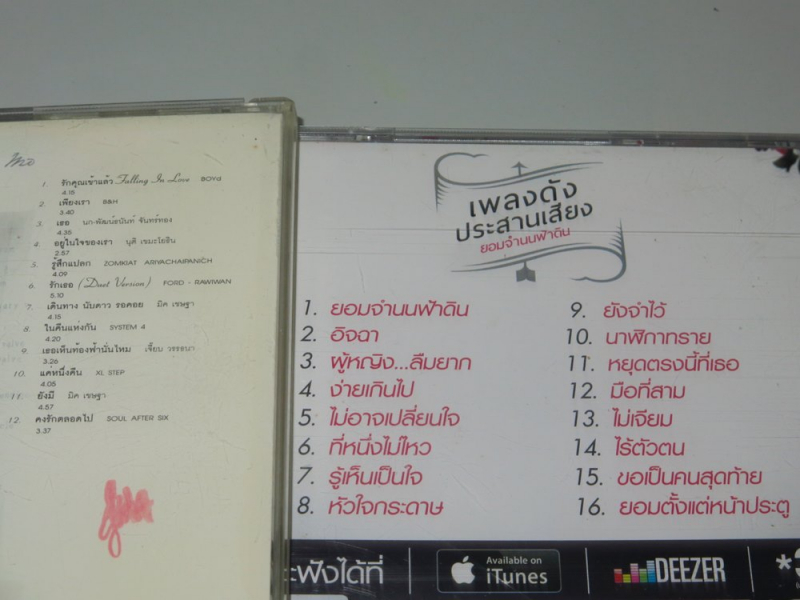 1. รักคุณเข้าแล้ว Falling In Love BOYd
4.15
2. เพียงเรา B&H
3.40
3. เธอ นก-พัฒน์ธนันท์ จันทร์ทอง
4.35
4. อยู่ในใจของเรา นุติ เขมะโยธิน
2.57
5. รู้สึกแปลก ZOMKIAT ARIYACHAIPANICH
4.09
6. รักเธอ (Duet Version) FORD - RAWIWAN
5.10
7. เดินทาง นับดาว รอคอย มิค เรษฐา
4.15
8. ในคืนแห่งกัน SYSTEM 4
4.20
9. เธอเห็นท้องฟ้านั่นไหม เจี๊ยบ วรรธนา
3.26
10. แค่หนึ่งคืน XL STEP
4.05
11. ยังมี มิค เรษฐา
4.57
12. คงรักตลอดไป SOUL AFTER SIX
3.37
เพลงดัง
ประสานเสียง
ยอมจำนนฟ้าดิน
1. ยอมจำนนฟ้าดิน
2. อิจฉา
3. ผู้หญิง...ลืมยาก
4. ง่ายเกินไป
5. ไม่อาจเปลี่ยนใจ
6. ที่หนึ่งไม่ไหว
7. รู้เห็นเป็นใจ
8. หัวใจกระดาษ
9. ยังจำไว้
10. นาฬิกาทราย
11. หยุดตรงนี้ที่เธอ
12. มือที่สาม
13. ไม่เจียม
14. ไร้ตัวตน
15. ขอเป็นคนสุดท้าย
16. ยอมตั้งแต่หน้าประตู
ะฟังได้ที่
Available on
iTunes
DEEZER